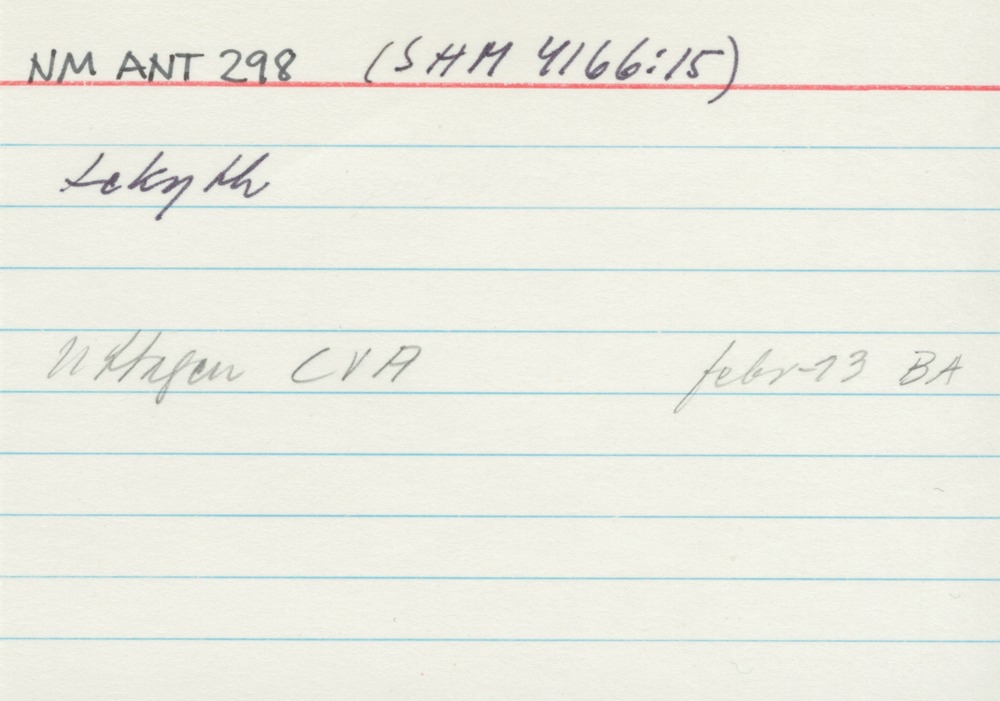 NM ANT 298 (SHM 4166:15)
Lekyth
Uttagen CVA febr-73 BA